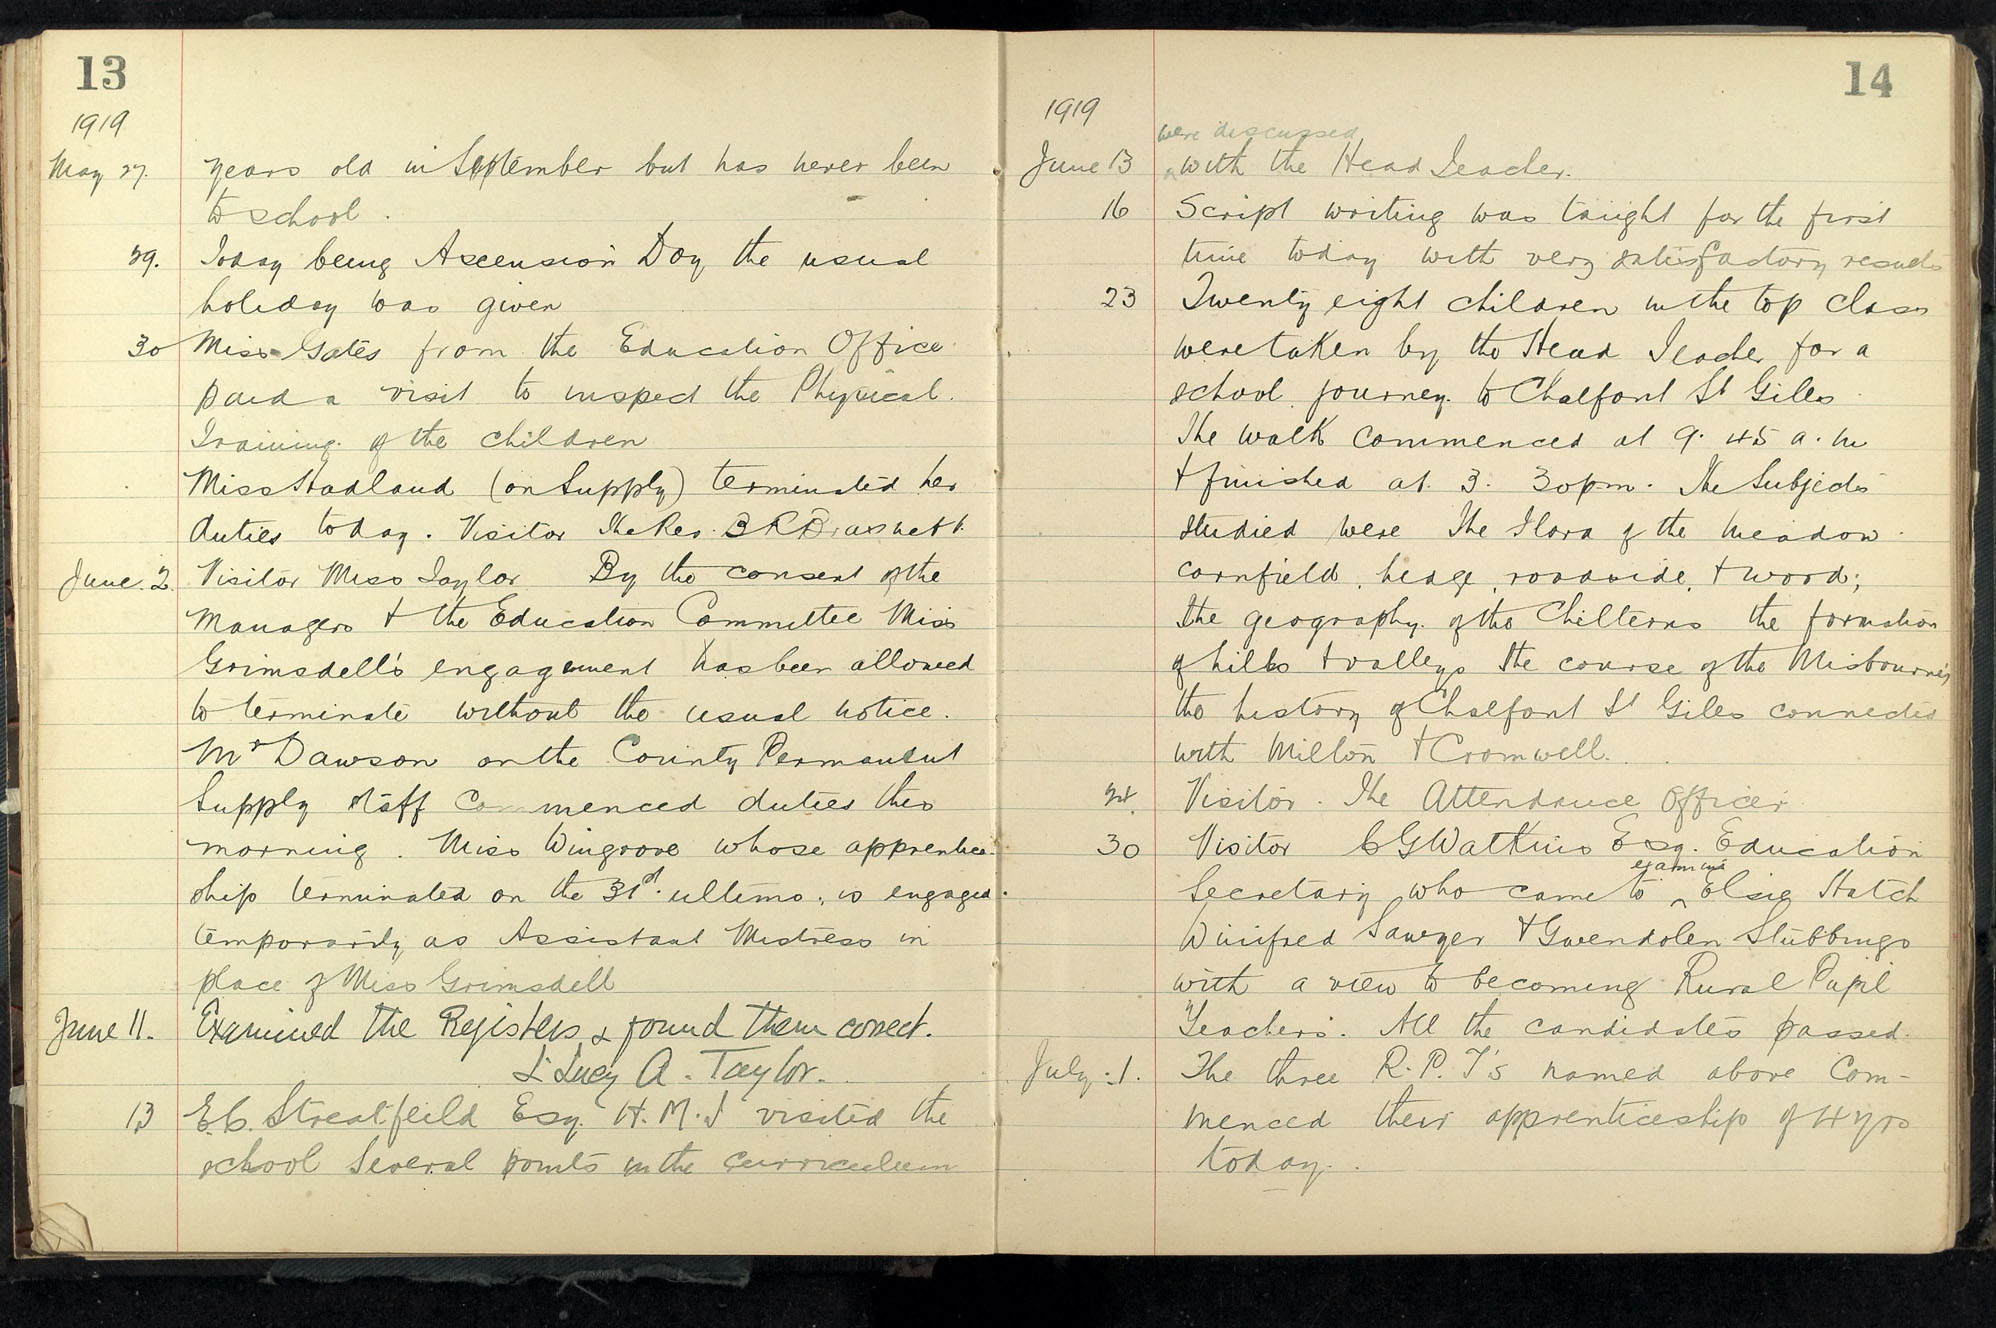 13
1919
May 27. years old in September but has never been
to school.
29. Today being Ascension Day the usual
holiday was given
30 Miss Gates from the Education Office
paid a visit to inspect the Physical
Training of the children
Miss Hadland (on Supply) terminated her
duties today. Visitor The Rev. B R Brasnett.
June 2. Visitor Miss Taylor By the consent of the
Managers & the Education Committee Miss
Grimsdell's engagement has been allowed
to terminate without the usual notice.
Mr Dawson on the County Permanent
Supply staff commenced duties this
morning. Miss Wingrove whose apprentice-
ship terminated on the 31st ultimo, is engaged
temporarily as Assistant Mistress in
place of Miss Grimsdell
June 11. Examined the Registers & found them correct.
Lucy A. Taylor.
13 E.C. Streatfeild Esq. H.M.I visited the
school Several points in the curriculum
14
1919
were discussed
June 13 with the Head Teacher.
16 Script writing was taught for the first
time today with very satisfactory results
23 Twenty eight children in the top class
were taken by the Head Teacher for a
school journey to Chalfont St Giles
The walk commenced at 9.45 a.m
& finished at 3.30pm. The Subjects
studied were The Flora of the meadow
cornfield, hedge, roadside, & wood;
the geography of the Chilterns the formation
of hills & valleys the course of the Misbourne,
the history of Chalfont St Giles connected
with Milton & Cromwell.
24. Visitor. The Attendance Officer.
30 Visitor C G Watkins Esq. Education
examine
Secretary who came to ^ Elsie Hatch
Winifred Sawyer & Gwendolen Stubbings
with a view to becoming Rural Pupil
Teachers. All the candidates passed.
July 1. The three R.P.T's named above Com-
menced their apprenticeship of 4 yrs
today.